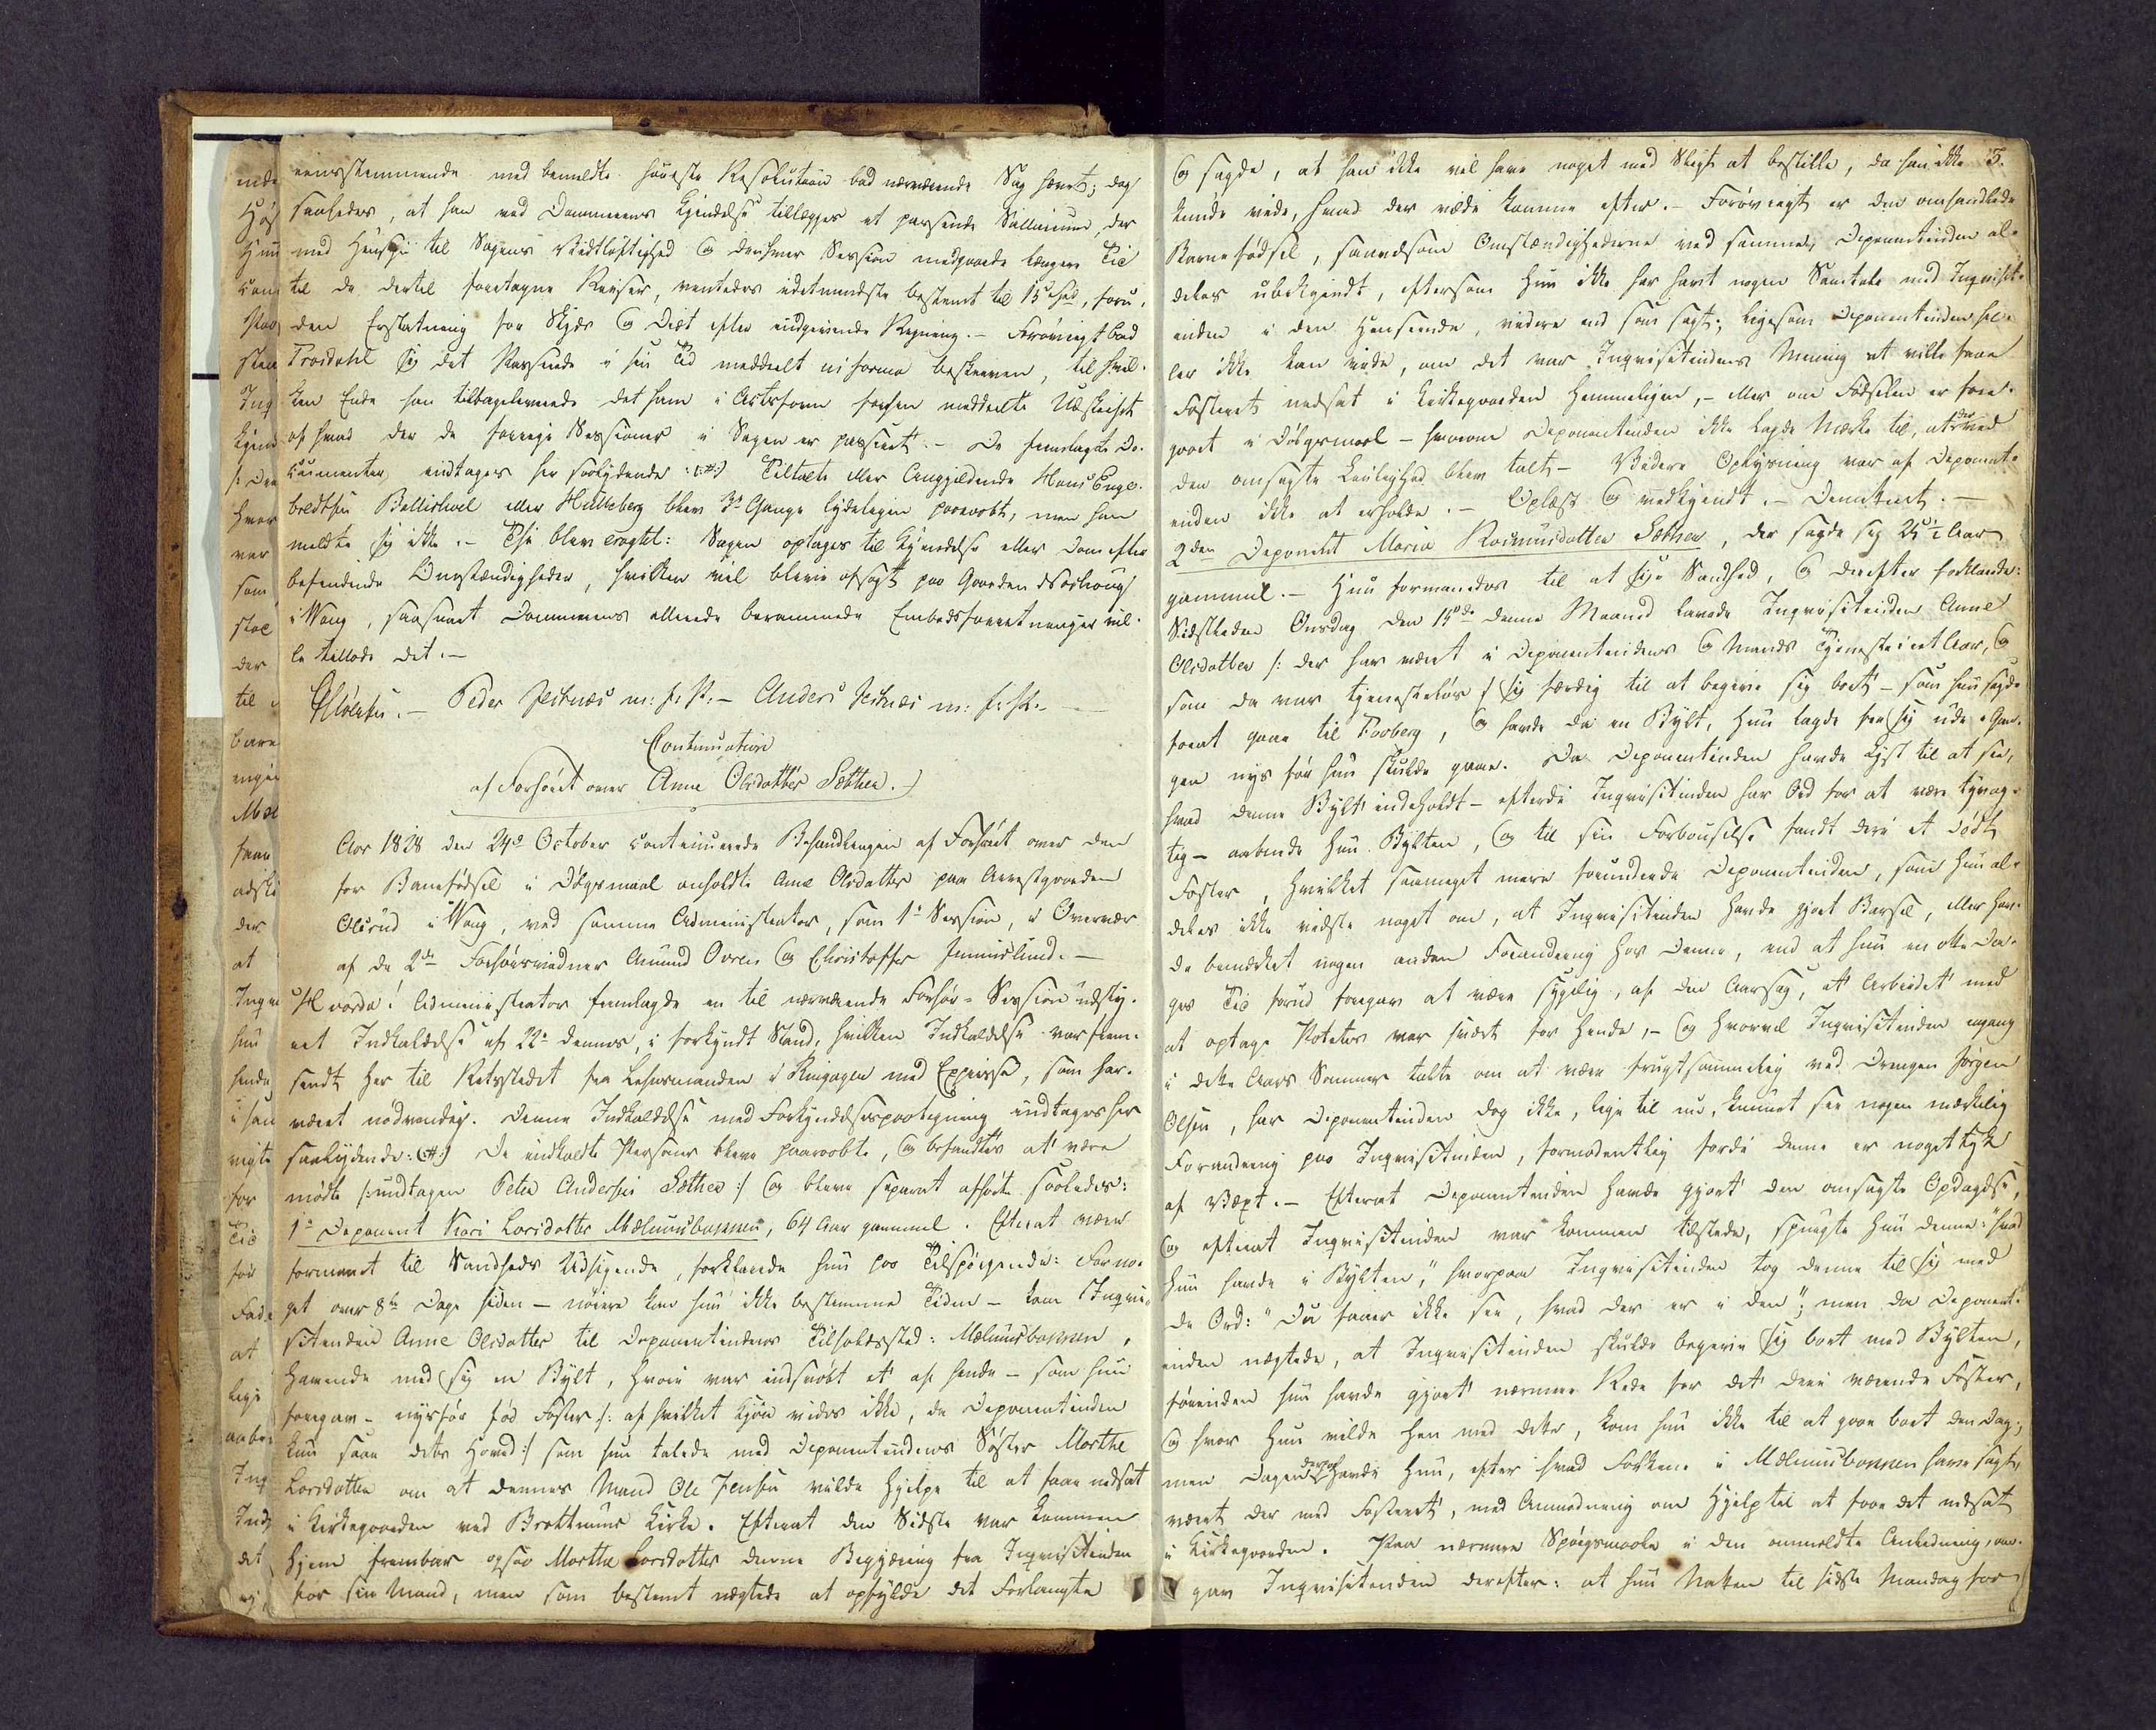 eensstemmende med bemeldte høieste Resolution bad nærværende Sag hævet; dog
saaledes, at han ved Dommerens Kjendelse tillægges et passende Sallarium, der
med Hensyn til Sagens Vidtløftighed og den hver Session medgaaede længere Tid
til de dertil foretagne Reiser, ventedes idetmindste bestemt til 15 Spd, foru-
den Erstatning for Skyds og Diæt efter indgivende Regning. – Forøvrigt bad
Trosdahl sig det Passerede i sin Tid meddeelt in forma beskreven, til hvil-
ken Ende han tilbageleverede det ham i Actsform forhen meddeelte Udskrift
af hvad der de forrige Sessioner i Sagen er passeret. – De fremlagte Do-
cumenter indtages her saalydende: (:#:) Tiltalte eller Angjeldende Hans Enge-
bredtsen Bellishoel eller Hulleberg blev 3de Gange lydeligen paaraabt, men han
meldte sig ikke. – Thi blev eragtet: Sagen optages til Kjendelse eller Dom efter
befindende Omstændigheder, hvilken vil blive afsagt paa Gaarden Norhoug
i Vang, saasnart Dommerens allerede berammede Embedsforretninger vil-
le tillade det. –
Peder Jestnæs m: f: P: – Anders Jestnæs m: f: P. –
Continuation
af Forhøret over Anne Olsdatter Sæthre.
Aar 1828 den 24de October continuerede Behandlingen af Forhøret over den
for Barnefødsel i Dølgsmaal anholdte Anne Olsdatter paa Arrestgaarden
Olsrud i Vang, ved samme Administrator, som 1te Session, i Overvær
af de 2de Forhørsvidner Amund Ovren og Christoffer Jemnislund. –
Hvorda! Administrator fremlagde en til nærværende Forhør-Session udsty-
ret Indkaldelse af 22de dennes, i forkyndt Stand, hvilken Indkaldelse var frem-
sendt her til Retsstedet fra Lehnsmanden i Ringsager med Expresse, som har
været nødvendig. Denne Indkaldelse med Forkyndelsespaategning indtages her
saalydende: (:#:) De indkaldte Personer bleve paaraabte, og befandtes at være
mødte /: undtagen Peter Andersen Sæthre :/ og bleve separat afhørte saaledes:
1te Deponent Kari Larsdatter Mælumsbakken, 64 Aar gammel. Efterat være
formanet til Sandheds Udsigende, forklarede hun paa Tilspørgende: For no-
get over 8te Dage siden – nøiere kan hun ikke bestemme Tiden – kom Inqvi-
sitinden Anne Olsdatter til Deponentindens Tilholdssted: Mælumsbakken,
havende med sig en Bylt, hvori var indsvøbt et af hende – som hun
foregav – nysfør fød Foster /: af hvilket Kjøn vides ikke, da Deponentinden
kun saae dets Hoved :/ som hun talede med Deponentindens Søster Marthe
Larsdatter om at dennes Mand Ole Jensen vilde hjelpe til at faae nedsat
i Kirkegaarden ved Brøttums Kirke. Efterat den Sidste var kommen
hjem frembar ogsaa Marthe Larsdatter denne Begjæring fra Inqvisitinden
for sin Mand, men som bestemt nægtede at opfylde det Forlangte
5.
og sagde, at han ikke vil have noget med Sligt at bestille, da han ikke
kunde vide, hvad der vilde komme efter. – Forøvrigt er den omhandlede
Barnefødsel, saavelsom Omstændighederne ved samme, Deponentinden al-
deles ubekjendt, eftersom hun ikke har havt nogen Samtale med Inqvisit-
inden i den Henseende, videre end som sagt; ligesom Deponentinden hel-
ler ikke kan vide, om det var Inqvisitindens Mening at ville faae
Fosteret nedsat i Kirkegaarden hemmeligen, – eller om Fødselen er fore-
gaaet i Dølgsmaal – hvorom Deponentinden ikke lagde Mærke til, at der ved
den omsagte Leilighed blev talt. – Videre Oplysning var af Deponent-
inden ikke at erholde. – Oplæst og vedkjendt. – Demitteret. –
2den Deponent Maria Rasmusdatter Sæthre, der sagde sig 25 1/2 Aar
gammel. – Hun formanedes til at sige Sandhed, og derefter forklarede:
Sidstleden Onsdag den 15de denne Maaned lavede Inqvisitinden Anne
Olsdatter /: der har været i Deponentindens og Mands Tjeneste i et Aar, og
som da var tjenesteløs :/ sig færdig til at begive sig bort – som hun sagde
foerat gaae til Fosberg, og havde da en Bylt, hun lagde fra sig ude i Gan-
gen nys før hun skulde gaae. Da Deponentinden havde Lyst til at see,
hvad denne Bylt indeholdt – efterdi Inqvisitinden har Ord for at være tyvag-
tig – aabnede hun Bylten, og til sin Forbauselse fandt deri et dødt
Foster, hvilket saameget mere forundrede Deponentinden, som hun al-
deles ikke vidste noget om, at Inqvisitinden havde gjort Barsel, eller hav-
de bemærket nogen anden Forandring hos denne, end at hun en otte Da-
ges Tid forud foregav at være sygelig, af den Aarsag, at Arbeidet med
at optage Poteter var svært for hende, – og hvorvel Inqvisitinden engang
i dette Aars Sommer talte om at være frugtsommelig ved Drengen Jørgen
Olsen, har Deponentinden dog ikke, lige til nu, kunnet see nogen mærkelig
Forandring paa Inqvisitinden, formodentlig fordi denne er noget tyk
af Vext. – Efterat Deponentinden havde gjort den omsagte Opdagelse,
og efterat Inqvisitinden var kommen tilstede, spurgte hun denne: "hvad
hun havde i Bylten," hvorpaa Inqvisitinden tog denne til sig med
de Ord: "Du faaer ikke see, hvad der er i den"; men da Deponent-
inden nægtede, at Inqvisitinden skulde begive sig bort med Bylten,
førinden hun havde gjort nærmere Rede for det deri værende Foster,
og hvor hun vilde hen med dette, kom hun ikke til at gaae bort den Dag;
men Dagen derpaa havde hun, efter hvad Folkene i Mælumsbakken have sagt,
været der med Fosteret, med Anmodning om Hjelp til at faae det nedsat
i Kirkegaarden. Paa nærmere Spørgsmaale i den anmeldte Anledning, an-
gav Inqvisitinden derefter: at hun Natten til sidste Mandag for-